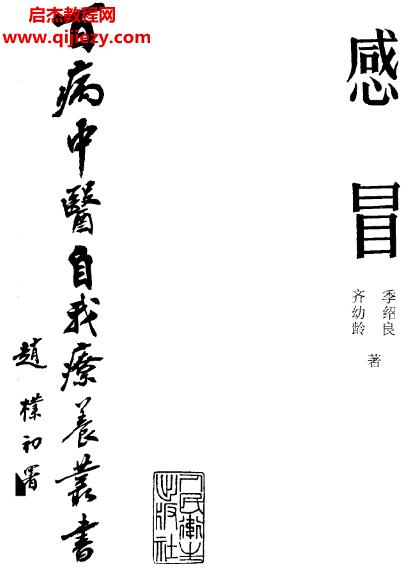 启杰教程网
www.qijiezy.com
感冒
季绍良
齐幼龄
著
百病中醫自我療養叢書
趙樸初署
人民衛生
出版社